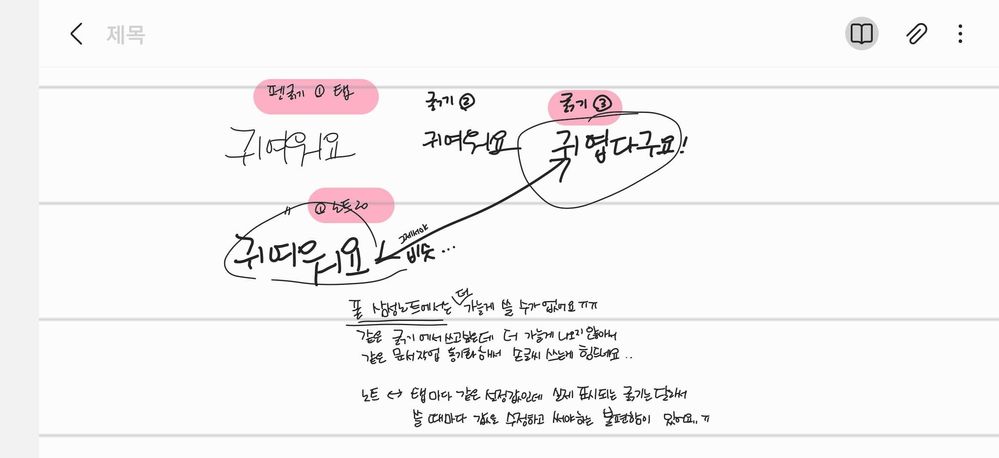 제목
펜굵기 ① 탭
굵기 ②
굵기 ③
귀여워요
귀여워요
귀엽다구요!
〃 ① 노트20
귀여워요
그제서야
비슷...
폰 삼성노트에서는 더 가늘게 쓸 수가 없어요 ㅠㅠ
같은 굵기에서 쓰고싶은데 더 가늘게 나오지 않아서
같은 문서작업 동기화해서 손글씨 쓰는게 힘드네요..
노트 ↔ 탭마다 같은 설정값인데 실제 표시되는 굵기는 달라서
쓸 때마다 값을 수정하고 써야하는 불편함이 있어요.. ㅠ